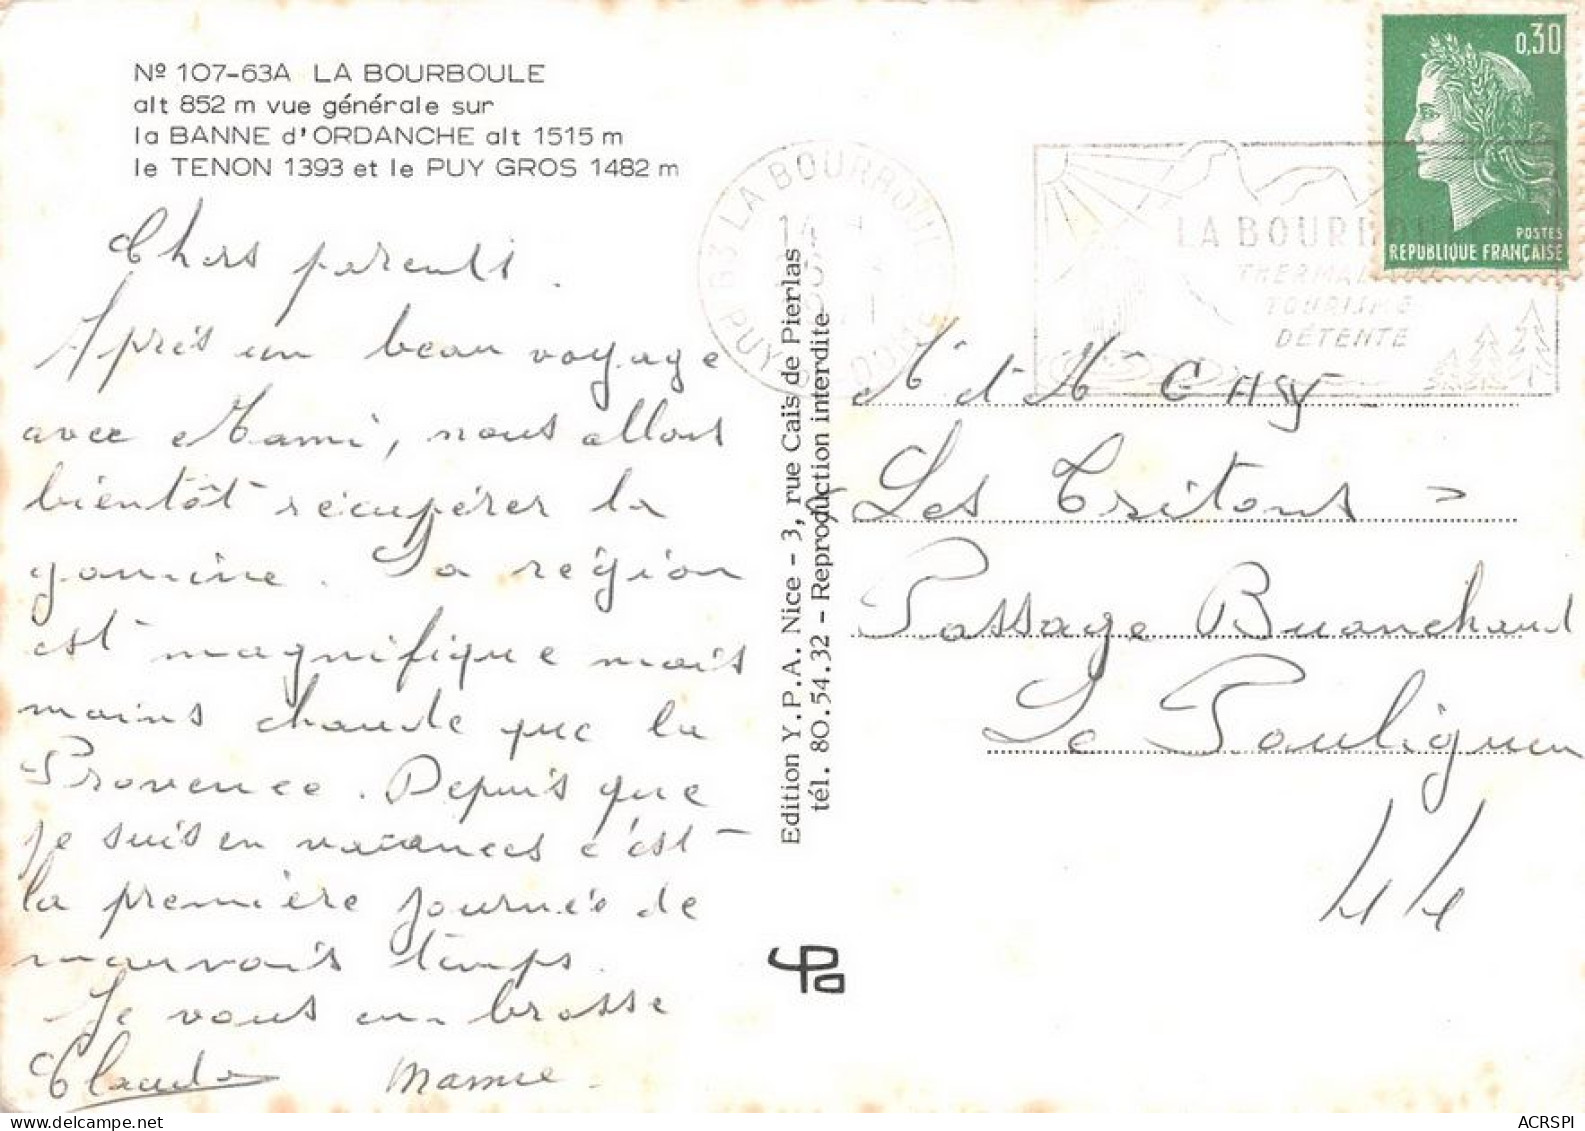 Nº 107-63A LA BOURBOULE
alt 852 m vue générale sur
la BANNE d'ORDANCHE alt 1515 m
le TENON 1393 et le PUY GROS 1482 m
Chers parents.
Après un beau voyage
avec Mami, nous allons
bientôt récupérer la
gamine. La région
est magnifique mais
moins chaude que la
Provence. Depuis que
je suis en vacances c'est
la première journée de
mauvais temps.
Je vous embrasse
Claude Mamie.
Edition Y.P.A. Nice - 3, rue Caïs de Pierlas
tél. 80.54.32 - Reproduction interdite
YPA
63 LA BOURBOULE
PUY DE DOME
14 H
LA BOURBOULE
THERMALISME
TOURISME
DÉTENTE
0,30
POSTES
REPUBLIQUE FRANÇAISE
M et M
"Les Tritons"
Passage Buanchaud
Le Pouliguen
44
ACRSPI